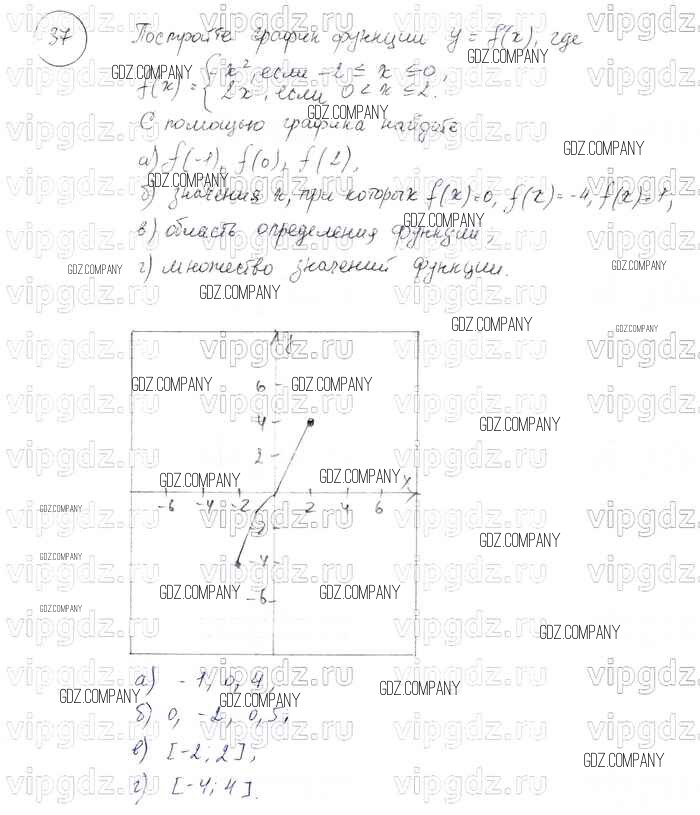 37
Постройте график функции y = f(x), где
f(x) = { -x², если -2 ≤ x ≤ 0,
2x, если 0 < x ≤ 2.
С помощью графика найдите
а) f(-1), f(0), f(2),
б) значения x, при которых f(x)=0, f(x)=-4, f(x)=1,
в) область определения функции,
г) множество значений функции.
y
6
4
2
-6 -4 -2 2 4 6 x
-2
-4
-6
а) -1, 0, 4,
б) 0, -2, 0,5,
в) [-2; 2];
г) [-4; 4].
vipgdz.ru
GDZ.COMPANY